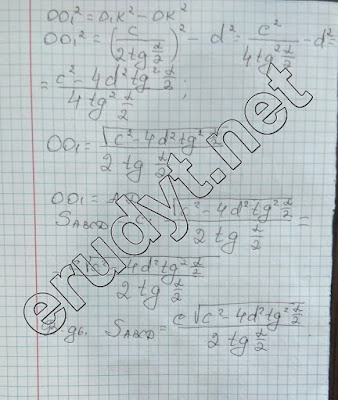 OO₁² = O₁K² - OK²
OO₁² = (c / 2 tg α/2)² - d² = c² / 4 tg² α/2 - d² =
= c² - 4d² tg² α/2 / 4 tg² α/2 ;
OO₁ = √c² - 4d² tg² α/2 / 2 tg α/2
OO₁ =
S ABCD √c² - 4d² tg² α/2 / 2 tg α/2 =
√c² - 4d² tg² α/2 / 2 tg α/2
S ABCD = c √c² - 4d² tg² α/2 / 2 tg α/2
erudyt.net